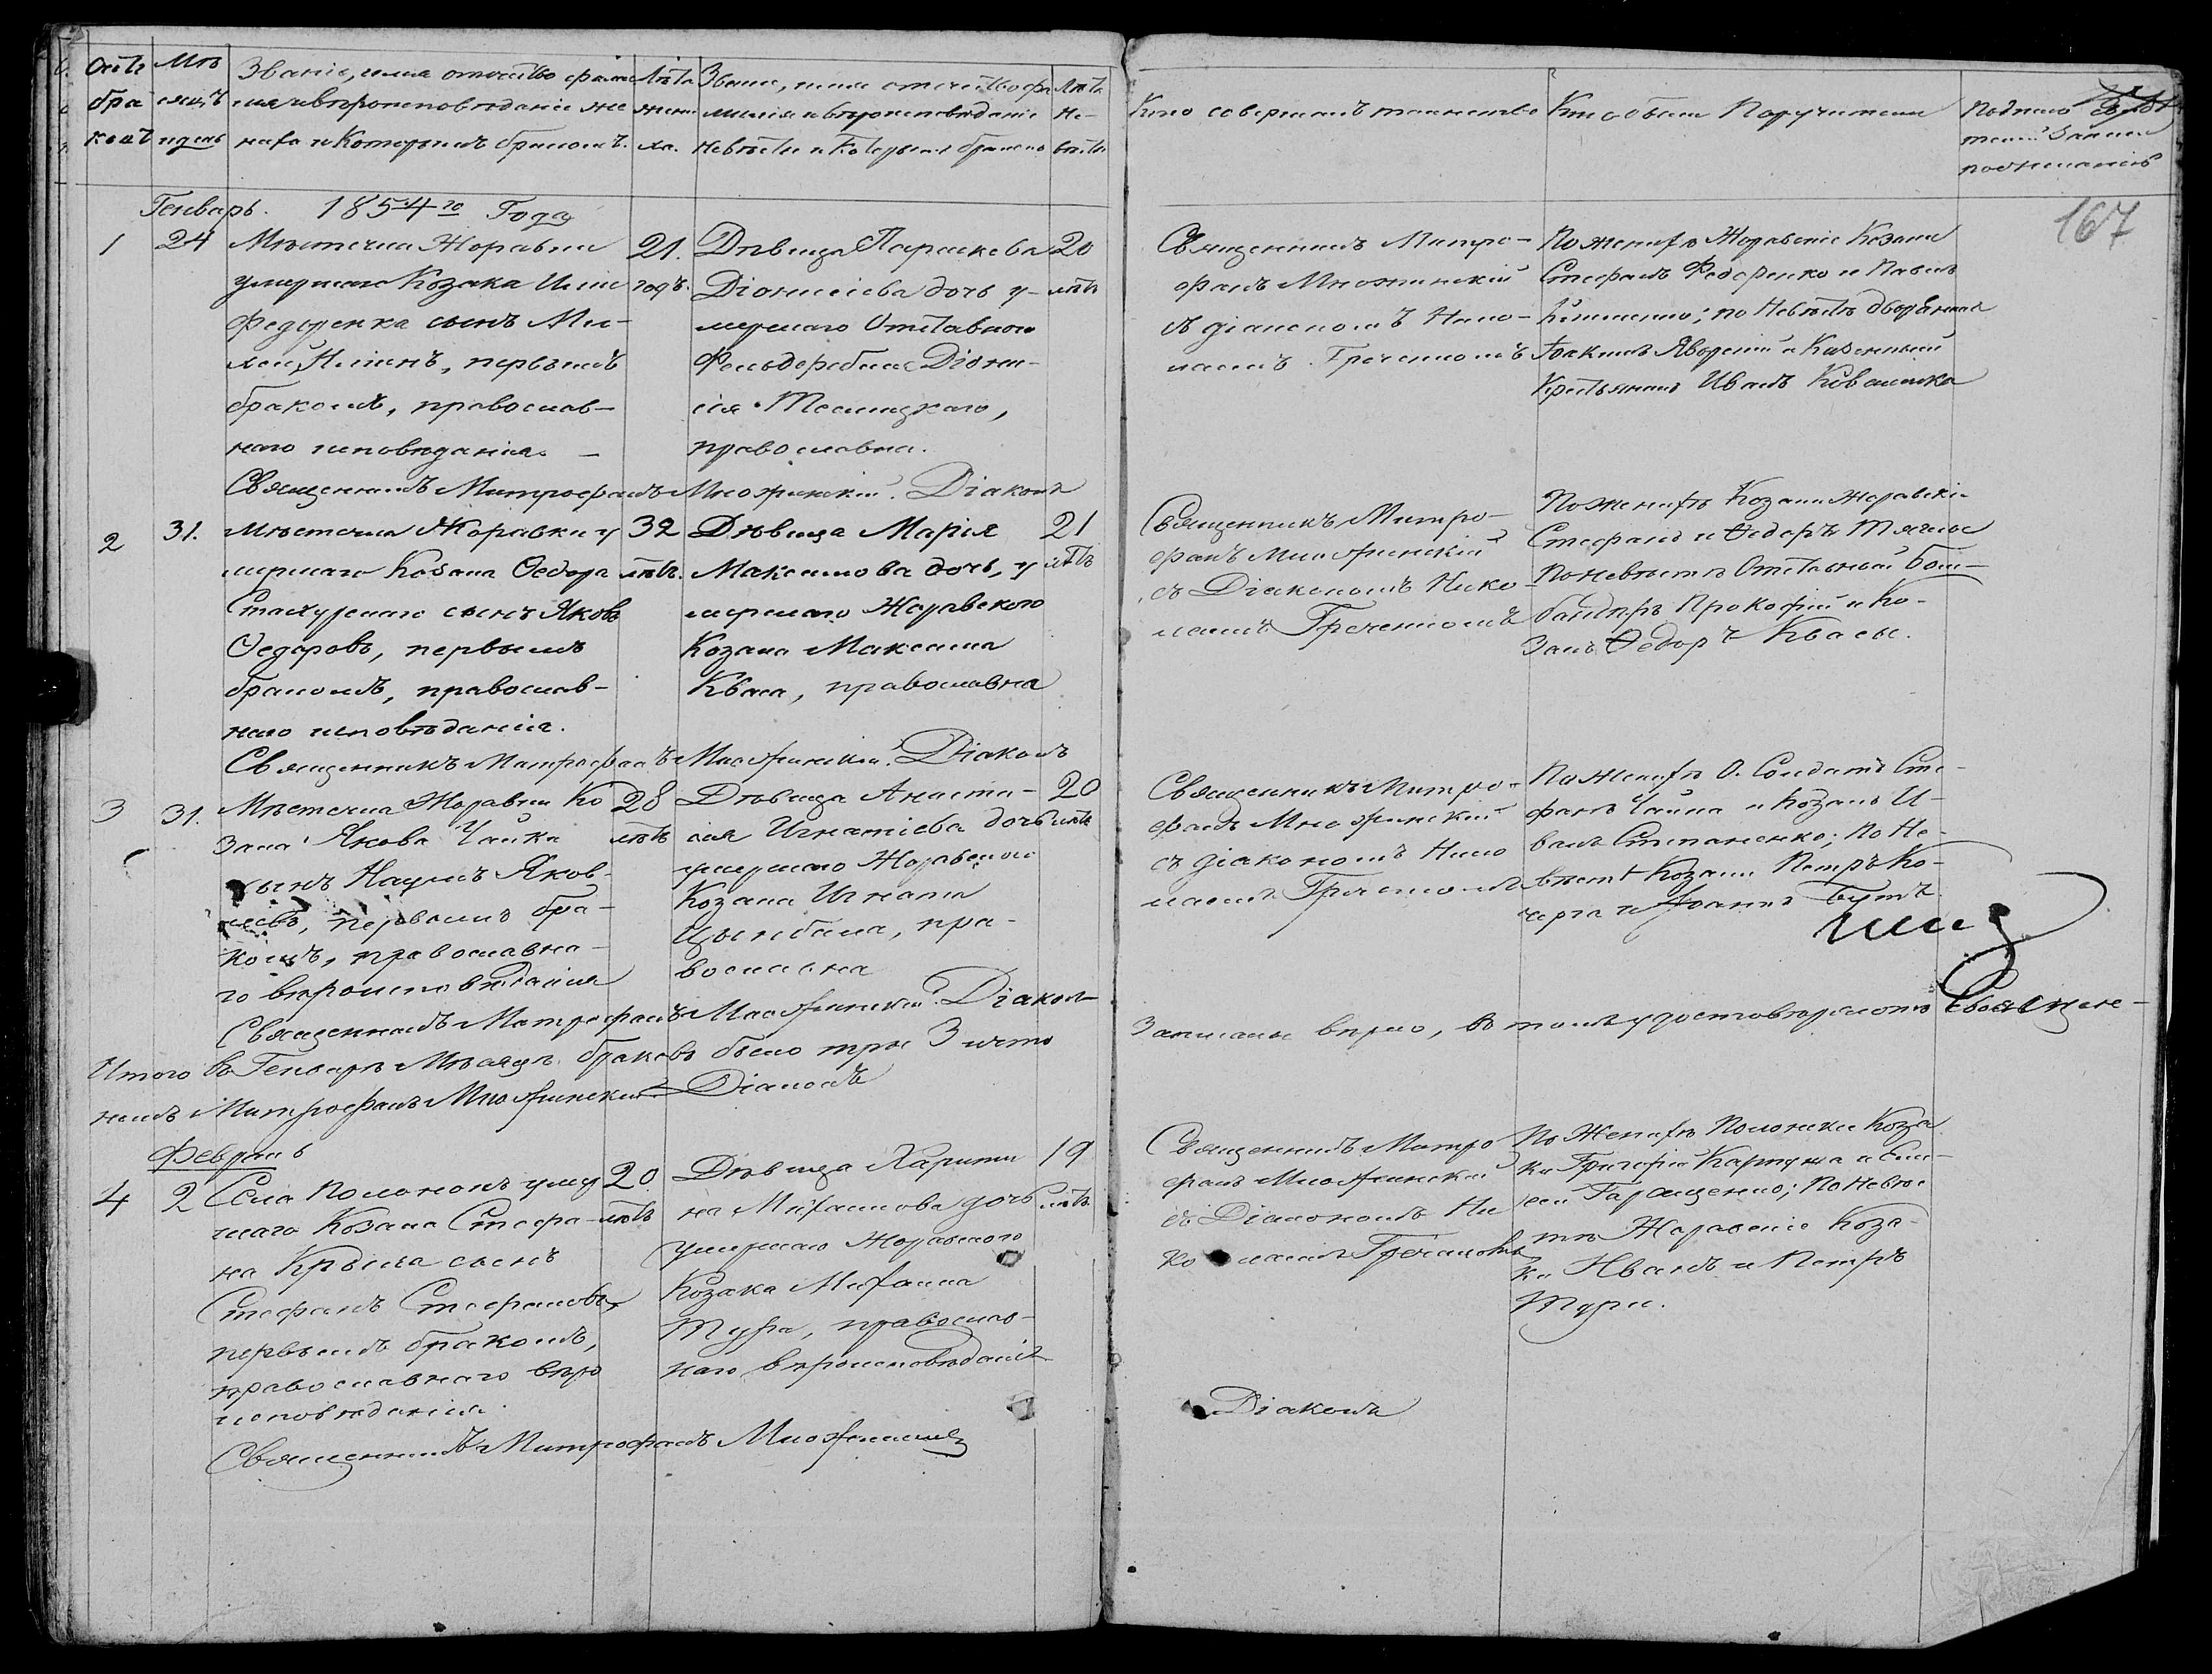 Счетъ браковъ
Мѣсяцъ и день
Званіе, имя отчество фами-
лія и вѣроисповѣданіе же-
ниха и которымъ бракомъ.
Лѣта жени-
ха.
Званіе, имя отчество фа-
милія и вѣроисповѣданіе
невѣсты и которымъ бракомъ
Лѣта
не-
вѣсты
Кто совершалъ таинство
Кто были Поручители
Подпись свидѣ-
телей записи
по желанію
167
Генварь. 1854го Года
1
24
Мѣстечка Жоравки
умершаго Козака
Федоренка сынъ
первымъ
бракомъ, православ-
наго исповѣданія. –
21.
годъ.
Дѣвица Параскева
Діонисіева дочь у-
мершаго Отставнаго
Діони-
сія
православна.
20
лѣтъ
Священникъ Митро-
фанъ Множинскій
съ діакономъ Нико-
лаемъ Гречкиномъ
По женихѣ Жоравскіе Козаки
Стефанъ Федоренко и Павелъ
по Невѣстѣ дворянинъ
Іоакимъ Яворскій и Казенный
Крестьянинъ Иванъ
Священникъ Митрофанъ Множинскій. Діаконъ
2
31.
Мѣстечка Жоравки у
мершаго Козака Ѳедора
сынъ Яковъ
Ѳедоровъ, первымъ
бракомъ, православ-
наго исповѣданія.
32
лѣтъ.
Дѣвица Марія
Максимова дочь, у
мершаго Жоравского
Козака Максима
Кваса, православна
21
лѣтъ
Священникъ Митро-
фанъ Множинскій
съ Діакономъ Нико-
лаемъ
По женихѣ Козаки Жоравскіе
Стефанъ и Ѳедоръ
По невѣстѣ Отставный Бом-
бандиръ Прокофій и Ко-
закъ Ѳедоръ Квасы.
Священникъ Митрофанъ Множинскій. Діаконъ
3
31.
Мѣстечка Жоравки Ко
зака Якова Чайки
сынъ Наумъ Яков-
левъ, первымъ бра-
комъ, православна-
го вѣроисповѣданія
28
лѣтъ
Дѣвица Анаста-
сія Игнатіева дочь
умершаго Жоравского
Козака Игната
Цымбала, пра-
вославна
20
лѣтъ
Священникъ Митро-
фанъ Множинскій
съ діакономъ Нико
лаемъ
По женихѣ О. Солдатъ Сте-
фанъ Чайка и Козакъ И-
ванъ Степаненко; по Не-
вѣстѣ Козаки Петръ Ко-
черга и Іоаннъ
Священникъ Митрофанъ Множинскій. Діаконъ
Итого въ Генварѣ Мѣсяцѣ браковъ было три 3 исто
Записаны вѣрно, въ томъ удостовѣряютъ Священ-
никъ Митрофанъ Множинскій. Діаконъ
Февраль
4
2
Села Полонокъ умер
шаго Козака Стефа-
на сынъ
Стефанъ Стефановъ,
первымъ бракомъ,
православнаго вѣро
исповѣданія.
20
лѣтъ
Дѣвица Харити
на Михаилова дочь
умершаго Жоравского
Козака Михаила
православ-
наго вѣроисповѣданія
19
лѣтъ
Священникъ Митро
фанъ Множинскій
съ Діакономъ Ни
колаемъ
По Женихѣ Полонскіе Коза
ки Григорій
по Невѣс
тѣ Жоравскіе Коза-
ки Иванъ и Петръ
Священникъ Митрофанъ Множинскій
Діаконъ